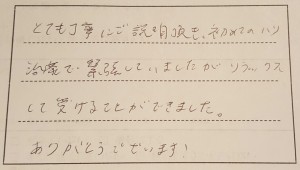 とても丁寧にご説明頂き、初めてのハリ
治療で緊張していましたがリラックス
して受けることができました。
ありがとうございます！